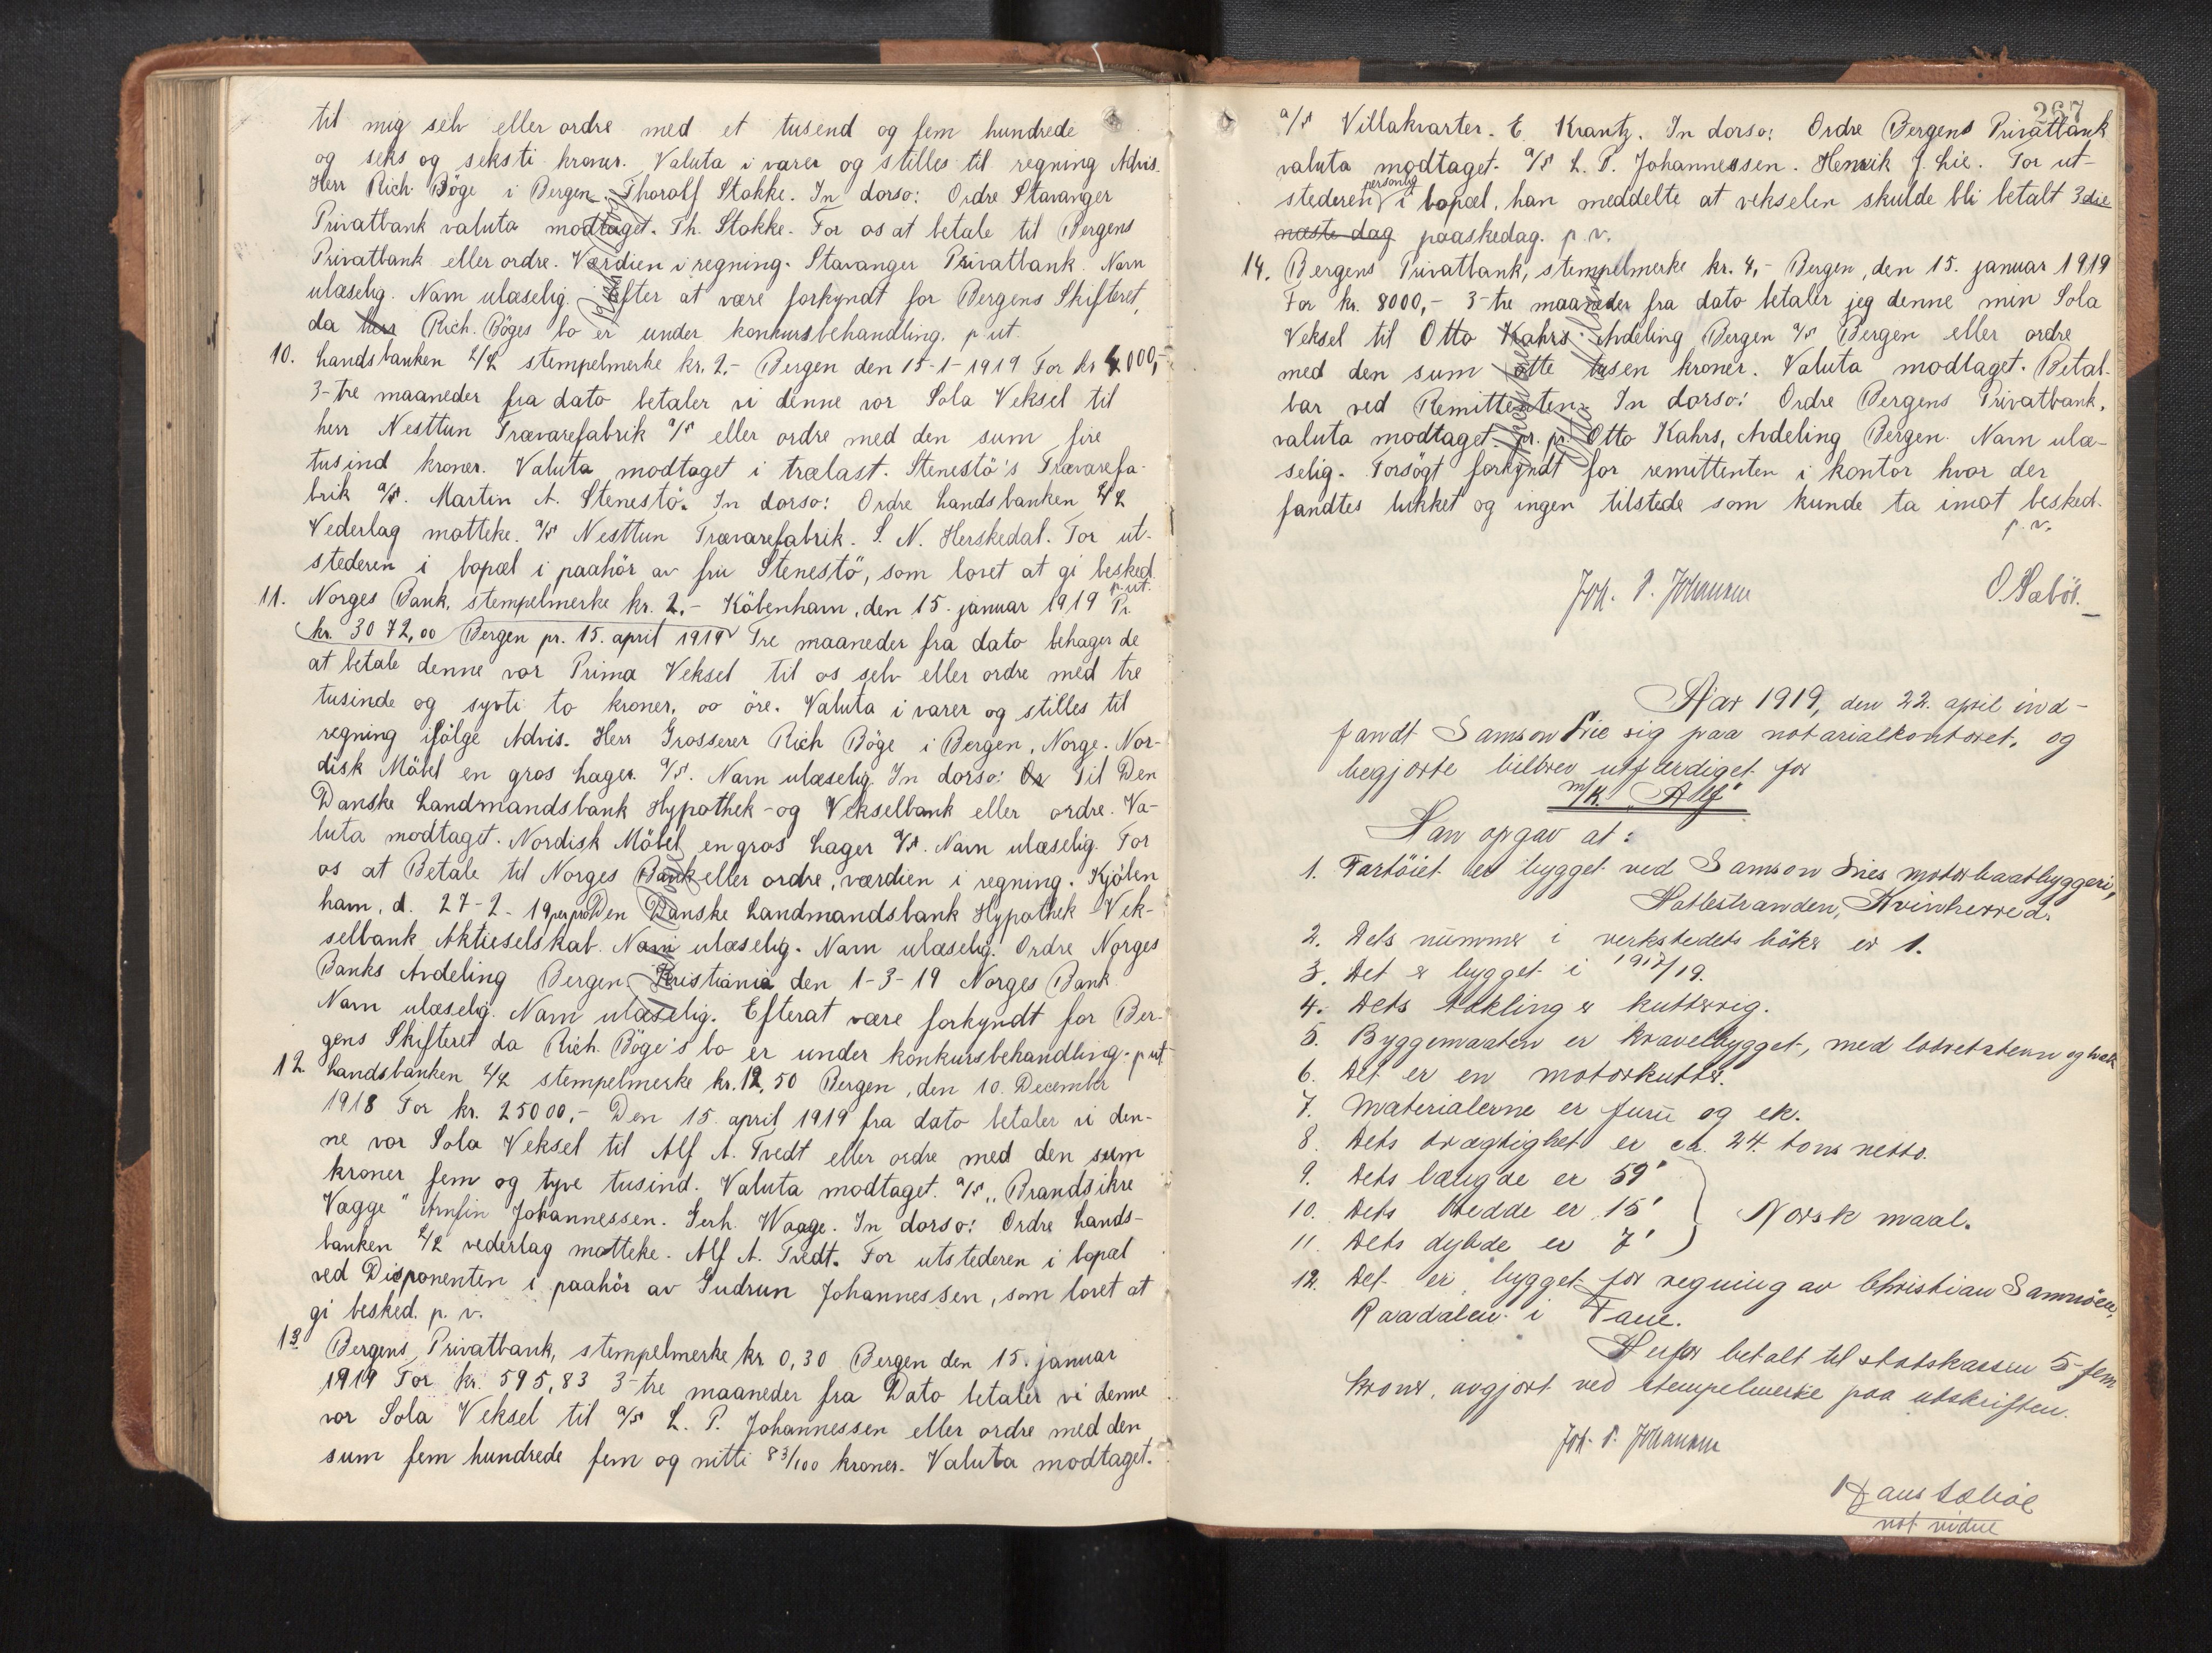 til mig selv eller ordre med et tusend og fem hundrede
og seks og seksti kroner. Valuta i varer og stilles til regning Advis.
Herr Rich Böge i Bergen. Thorolf Stokke. In dorso: Ordre Stavanger
Privatbank valuta modtaget. Th. Stokke. For os at betale til Bergens
Privatbank eller ordre. Værdien i regning. Stavanger Privatbank. Navn
ulæselig. Navn ulæselig. Efter at være forkyndt for Bergens Skifteret,
da herr Rich. Böges bo er under konkursbehandling. p ut.
10. Landsbanken A/L stempelmerke kr. 2,- Bergen den 15-1-1919 For kr 4000,-
3-tre maaneder fra dato betaler vi denne vor Sola Veksel til
herr Nesttun Trævarefabrik A/S eller ordre med den sum fire
tusind kroner. Valuta modtaget i trælast. Stenestö's Trævarefa-
brik A/S. Martin A. Stenestö. In dorso: Ordre Landsbanken A/L
Vederlag motteke. A/S Nesttun Trævarefabrik. S. N. Herskedal. For ut-
stederen i bopæl i paahör av fru Stenestö, som lovet at gi besked.
p. ut.
11. Norges Bank, stempelmerke kr. 2,- Köbenhavn, den 15. januar 1919 Pr.
kr. 3072,00 Bergen pr. 15. april 1919 Tre maaneder fra dato behager de
at betale denne vor Prima Veksel til os selv eller ordre med tre
tusinde og sytti to kroner, 00 öre. Valuta i varer og stilles til
regning ifölge Advis. Herr Grosserer Rich Böge i Bergen, Norge. Nor-
disk Möbel en gros Lager A/S. Navn ulæselig. In dorso: Or Til Den
Danske Landmandsbank Hypothek- og Vekselbank eller ordre. Va-
luta modtaget. Nordisk Möbel en gros Lager A/S. Navn ulæselig. For
os at Betale til Norges Bank eller ordre, værdien i regning. Kjöben
havn, d. 27-2-19 per pro Den Danske Landmandsbank Hypothek- Vek-
selbank Aktieselskab. Navn ulæselig. Navn ulæselig. Ordre Norges
Banks Avdeling Bergen. Kristiania den 1-3-19 Norges Bank
Navn ulæselig. Navn ulæselig. Efterat være forkyndt for Ber-
gens Skifteret da Rich. Böge's bo er under konkursbehandling. p ut
12. Landsbanken A/L stempelmerke kr. 12,50 Bergen, den 10. December
1918 For kr. 25000,- Den 15. april 1919 fra dato betaler vi den-
ne vor Sola Veksel til Alf A. Tvedt eller ordre med den sum
kroner fem og tyve tusind. Valuta modtaget. A/S "Brandsikre
Vægge" Arnfin Johannessen. Gerh. Waage. In dorso: Ordre Lands-
banken A/L vederlag motteke. Alf A. Tvedt. For utstederen i bopæl
ved Disponenten i paahör av Gudrun Johannessen, som lovet at
gi besked. p. v.
13. Bergens Privatbank, stempelmerke kr. 0,30 Bergen den 15. januar
1919 For kr. 595,83 3-tre maaneder fra Dato betaler vi denne
vor Sola Veksel til A/S L. P. Johannessen eller ordre med den
sum fem hundrede fem og nitti 83/100 kroner. Valuta modtaget.
267
A/S Villakvarter. E. Krantz. In dorso: Ordre Bergens Privatbank
valuta modtaget. A/S L. P. Johannessen. Henrik J. Lie. For ut-
stederen personlig i bopæl, han meddelte at vekselen skulde bli betalt 3die
næste dag paaskedag. p. v.
14. Bergens Privatbank, stempelmerke kr. 4,- Bergen, den 15. januar 1919
For kr. 8000,- 3-tre maaneder fra dato betaler jeg denne min Sola
Veksel til Otto Kahrs Avdeling Bergen A/S Bergen eller ordre
med den sum otte tusen kroner. Valuta modtaget. Betal-
bar ved Remittenten. In dorso: Ordre Bergens Privatbank,
valuta modtaget. pr. pr. Otto Kahrs, Avdeling Bergen. Navn ulæ-
selig. Forsögt forkyndt for remittenten i kontor hvor der
fandtes lukket og ingen tilstede som kunde ta imot besked.
p. v.
Joh. P. Johannsen
O. Sæböe.
Aar 1919, den 22. april ind-
fandt Samson Lie sig paa notarialkontoret, og
begjærte bilbrev utfærdiget for
m/k. "Alf"
Han opgav at:
1. Fartöiet er bygget ved Samson Lies motorbaatbyggeri,
Hatlestranden, Kvinherred.
2. Dets nummer i verkstedets böker er 1.
3. Det er bygget i 1917/19.
4. Dets takling er kutterrig.
5. Byggemaaten er kravelbygget, med lodret stevn og hæk
6. Det er en motorkutter.
7. Materialerne er furu og ek.
8. Dets drægtighet er ca. 24 tons netto.
9. Dets længde er 59'
10. Dets bredde er 15' Norsk maal.
11. Dets dybde er 7'
12. Det er bygget for regning av Christian Samnöen,
Raadalen i Fane.
Herfor betalt til statskassen 5-fem
kroner, avgjort ved stempelmerke paa utskriften.
Joh. P. Johannsen
Hans Sæböe
not vidne